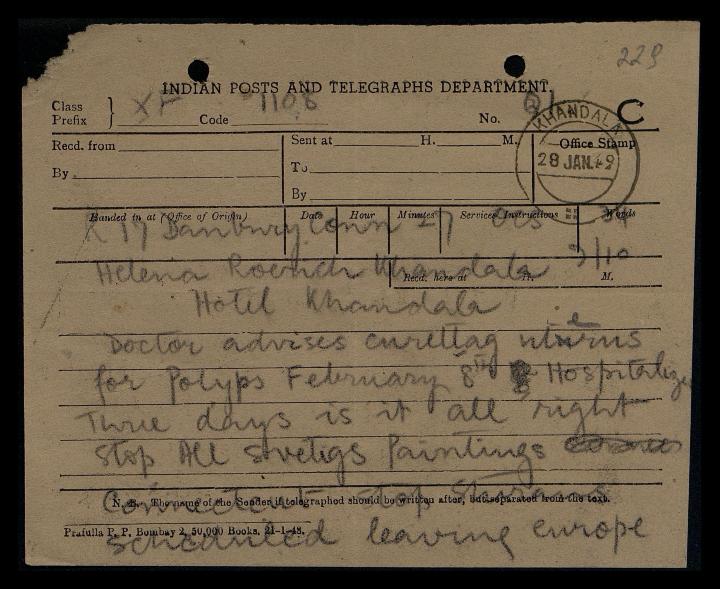 229
INDIAN POSTS AND TELEGRAPHS DEPARTMENT.
Class
Prefix } XF Code 1108 No. C
KHANDALA
28 JAN. 49
Recd. from Sent at H. M. Office Stamp
By To
By
Handed in at (Office of Origin) Date Hour Minutes Service Instructions Words
X 17 Danbury Conn 27 34
Helena Roerich Khandala 9/10
Recd. here at H. M.
Hotel Khandala
Doctor advises curettag uterus
for Polyps February 8th Hospitalize
Three days is it all right
stop All Svetigs Paintings
Connecticut stop
N. B. The name of the Sender if telegraphed should be written after, but separated from the text.
Prafulla P. P. Bombay 2, 50,000 Books, 21-1-48.
scheduled leaving europe